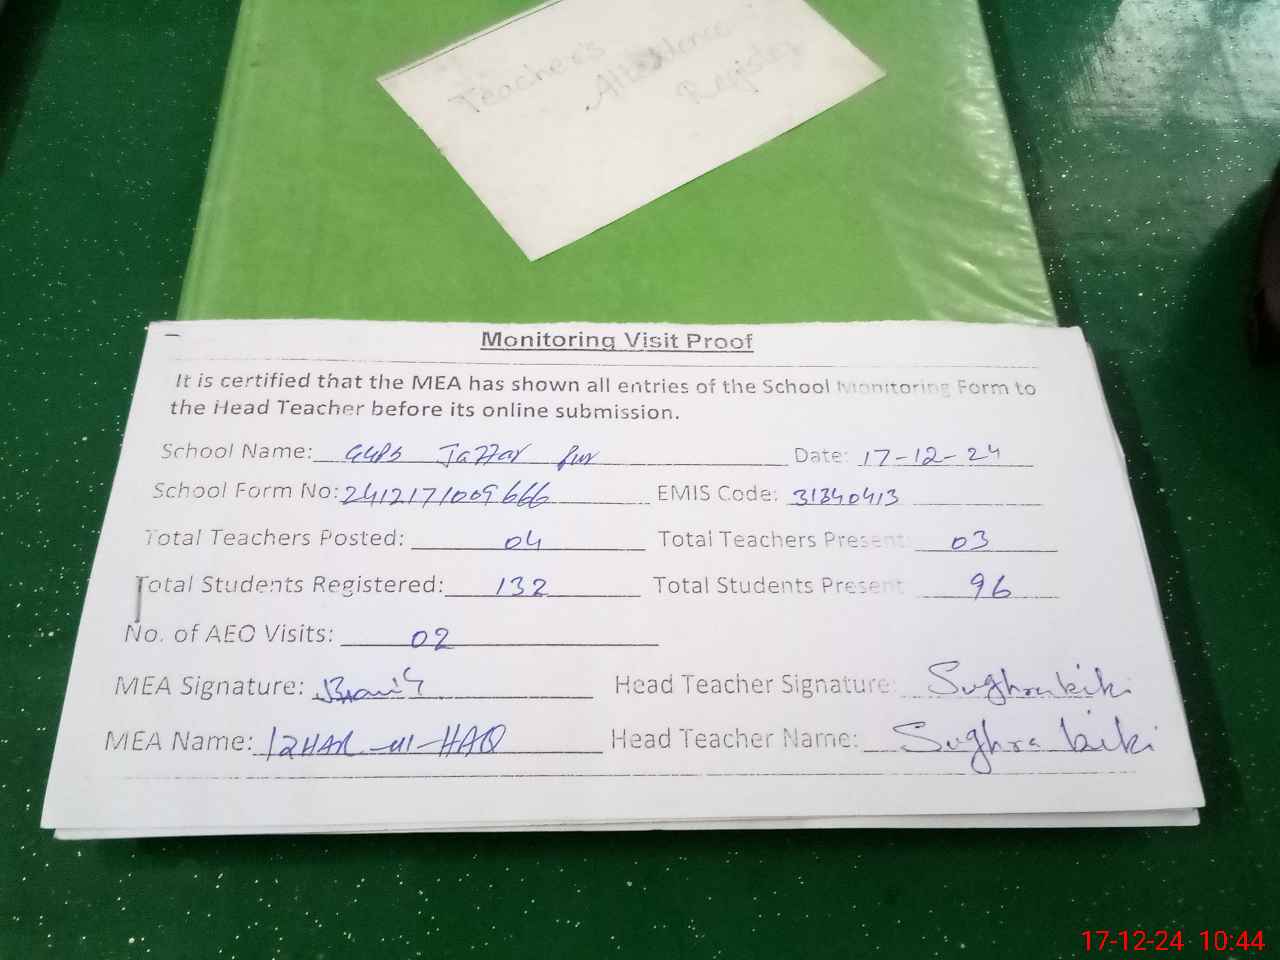 Teacher's
Attendence
Register
Monitoring Visit Proof
It is certified that the MEA has shown all entries of the School Monitoring Form to
the Head Teacher before its online submission.
School Name: GGPS Jaffar pur Date: 17-12-24
School Form No: 2412171009666 EMIS Code: 31340413
Total Teachers Posted: 04 Total Teachers Present: 03
Total Students Registered: 132 Total Students Present: 96
No. of AEO Visits: 02
MEA Signature: Head Teacher Signature: Sughra bibi
MEA Name: IZHAR-ul-HAQ Head Teacher Name: Sughra bibi
17-12-24 10:44